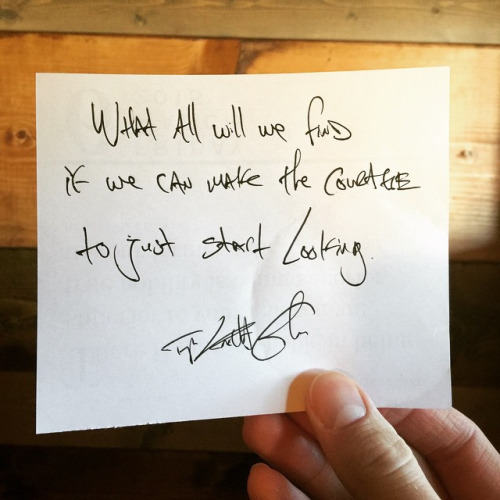 WHAT All will we FIND
if we CAN MAKE the COURAGE
to just start looking.